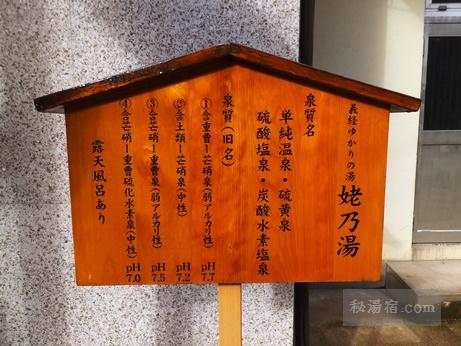 義経ゆかりの湯
姥乃湯
泉質名
単純温泉・硫黄泉
硫酸塩泉・炭酸水素塩泉
泉質(旧名)
①含重曹ー芒硝泉(弱アルカリ性) pH7.7
②含土類ー芒硝泉(中性) pH7.2
③含芒硝ー重曹泉(弱アルカリ性) pH7.5
④含芒硝ー重曹硫化水素泉(中性) pH7.0
露天風呂あり
秘湯宿.com